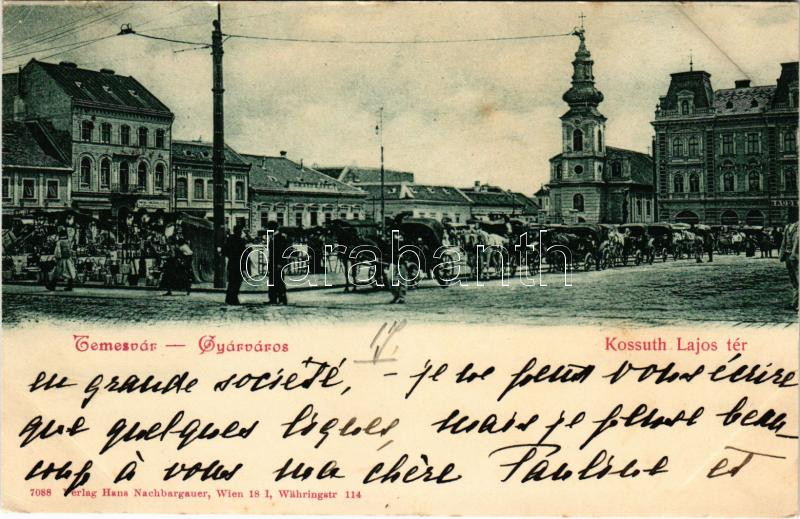 darabanth
Temesvár — Gyárváros
Kossuth Lajos tér
en grande société, - je ne peux vous écrire
que quelques lignes, mais je pense beau-
coup à vous ma chère Pauline et
7088 Verlag Hans Nachbargauer, Wien 18 I, Währingstr 114